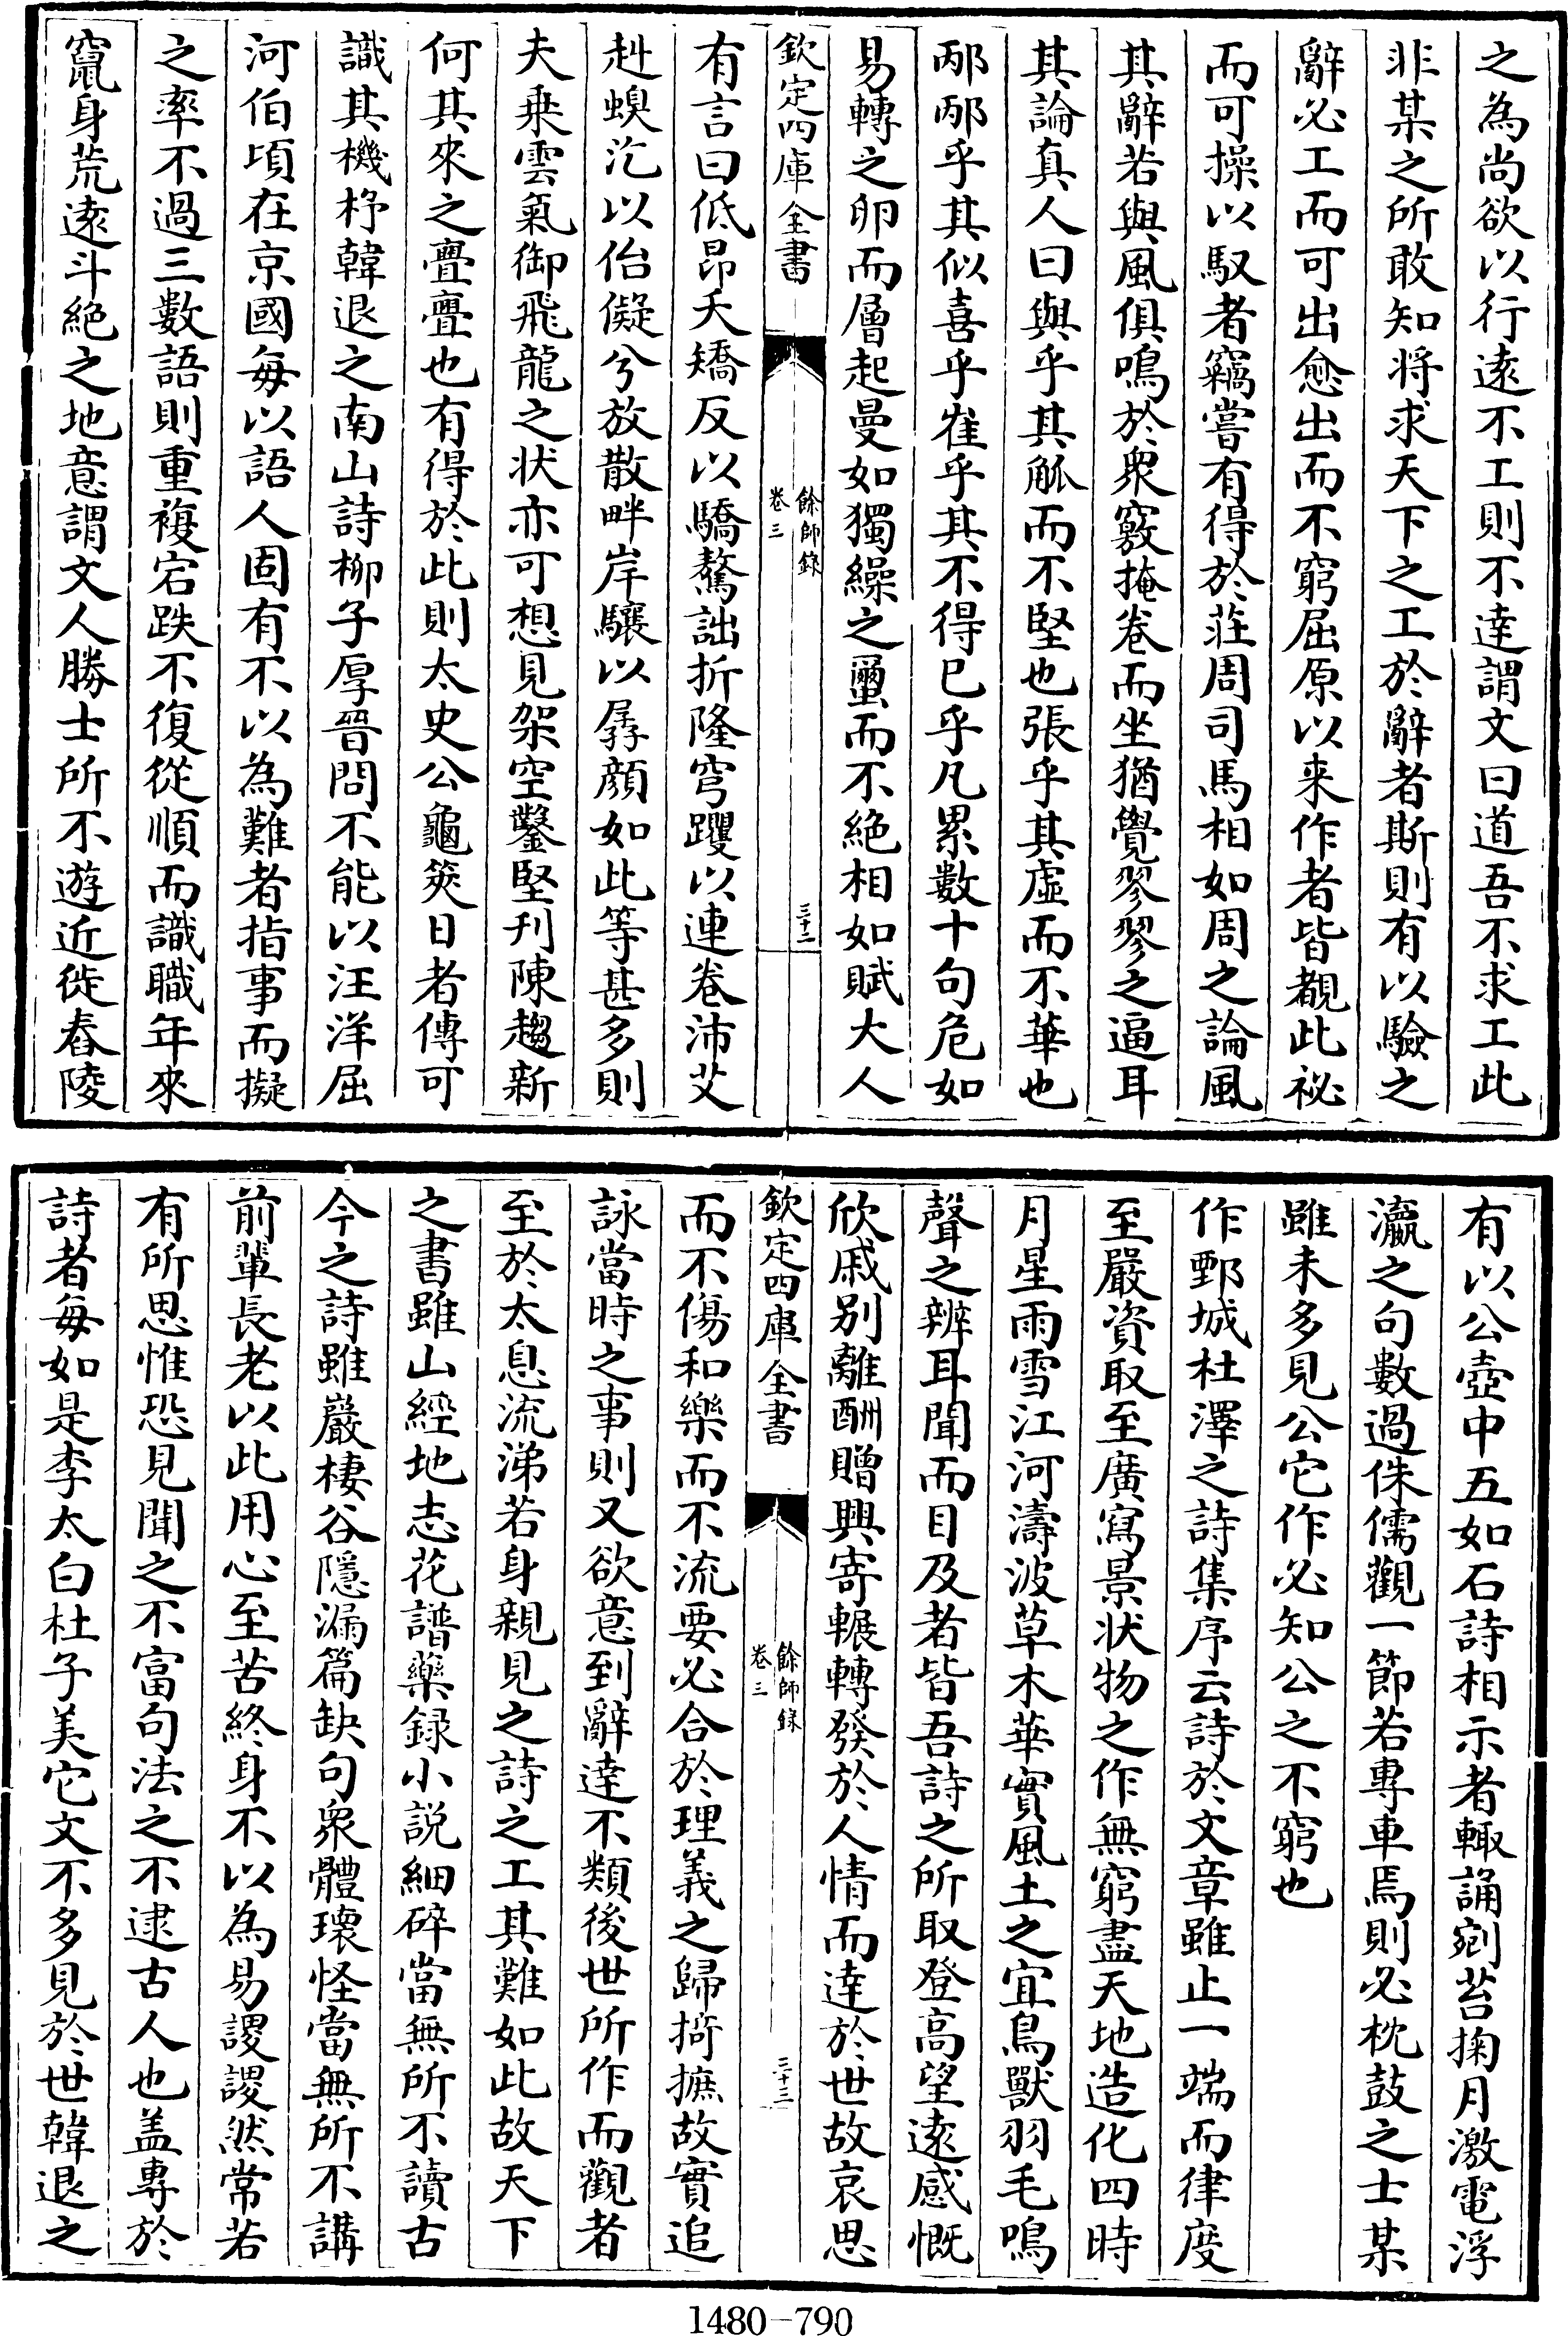 之為尚欲以行逺不工則不逹謂文曰道吾不求工此
非某之所敢知将求天下之工於辭者斯則有以驗之
辭必工而可出愈出而不窮屈原以来作者皆覩此祕
而可操以馭者竊嘗有得於莊周司馬相如周之論風
其辭若與風俱鳴於衆竅掩卷而坐猶覺翏翏之逼耳
其論真人曰與乎其觚而不堅也張乎其虛而不華也
邴邴乎其似喜乎崔乎其不得已乎凡累數十句危如
易轉之卵而層起曼如獨繰之蠒而不絶相如賦大人
欽定四庫全書
餘師錄
卷三
三十二
有言曰低昂夭矯反以驕驁詘折隆穹躩以連卷沛艾
赳螑汔以佁儗兮放散畔岸驤以孱顔如此等甚多則
夫乗雲氣御飛龍之状亦可想見架空鑿堅刋陳趨新
何其來之亹亹也有得於此則太史公龜筴日者傳可
識其機杼韓退之南山詩栁子厚晉問不能以汪洋屈
河伯頃在京國毎以語人固有不以為難者指事而擬
之率不過三數語則重複宕跌不復從順而識職年來
竄身荒逺斗絶之地意謂文人勝士所不遊近徙舂陵
有以公壺中五如石詩相示者輙誦剜苔掬月激電浮
瀛之句數過侏儒觀一節若專車焉則必枕鼓之士某
雖未多見公它作必知公之不窮也
作鄄城杜澤之詩集序云詩於文章雖止一端而律度
至嚴資取至廣寫景状物之作無窮盡天地造化四時
月星雨雪江河濤波草木華實風土之宜鳥獸羽毛鳴
聲之辨耳聞而目及者皆吾詩之所取登高望逺感慨
欣戚别離酬贈興寄輾轉發於人情而逹於世故哀思
欽定四庫全書
餘師錄
卷三
三十三
而不傷和樂而不流要必合於理義之歸掎摭故實追
詠當時之事則又欲意到辭逹不類後世所作而觀者
至於太息流涕若身親見之詩之工其難如此故天下
之書雖山經地志花譜藥録小説細碎當無所不讀古
今之詩雖巖棲谷隱漏篇缺句衆體瓌怪當無所不講
前輩長老以此用心至苦終身不以為易謖謖然常若
有所思惟恐見聞之不富句法之不逮古人也盖專於
詩者毎如是李太白杜子美它文不多見於世韓退之
1480-790